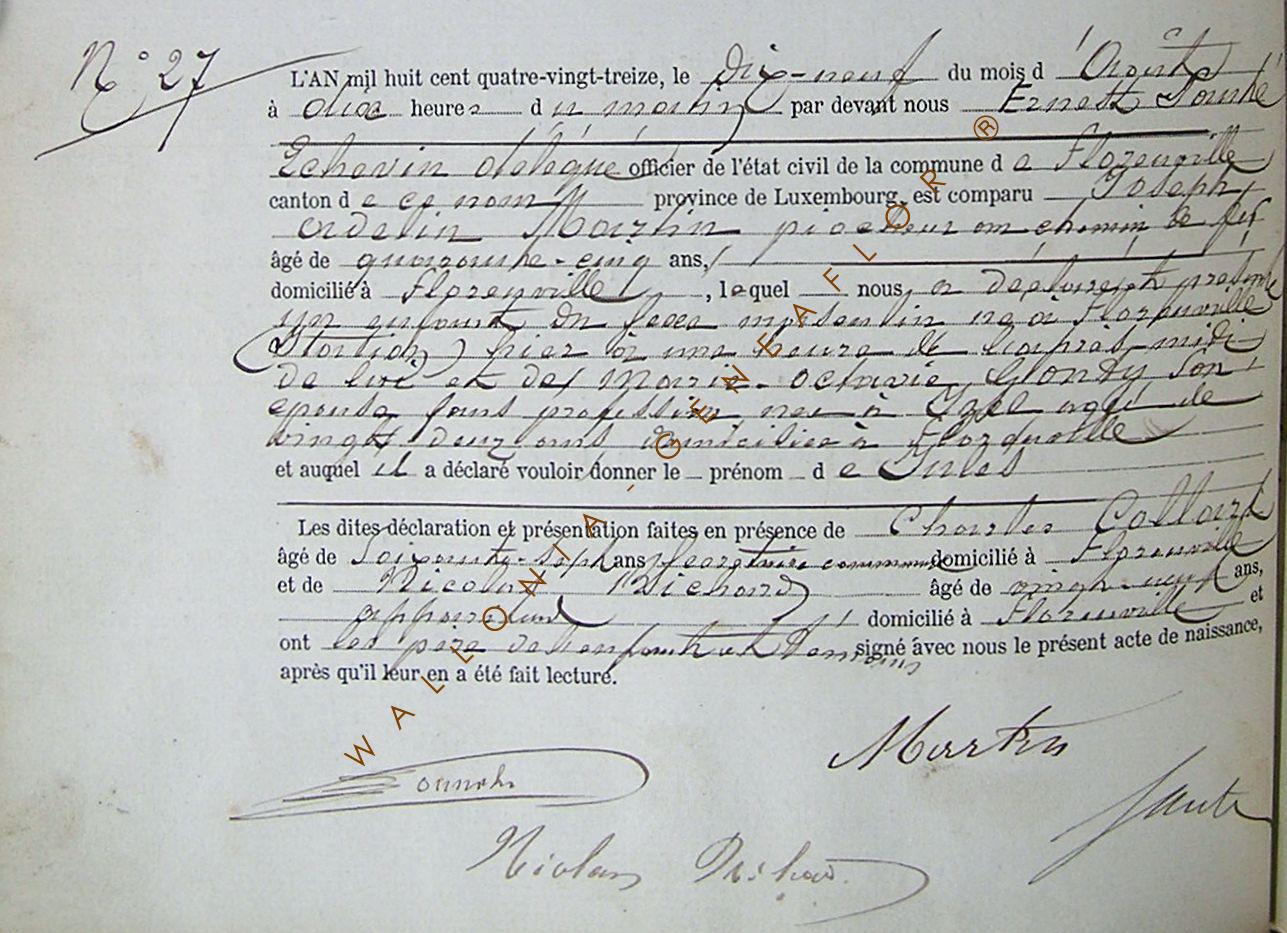 N° 27
L'AN mil huit cent quatre-vingt-treize, le dix-neuf du mois d'Août
à dix heures du matin par devant nous Ernest
Echevin délégué officier de l'état civil de la commune de Florenville
canton de ce nom province de Luxembourg, est comparu Joseph
Adelin Martin piocheur au chemin de fer
âgé de quarante-cinq ans,
domicilié à Florenville, lequel nous a déclaré et présenté
un enfant du sexe masculin né à Florenville
(Station) hier à une heure de l'après-midi
de lui et de Marie-Octavie Glondy son
épouse sans profession née à Izel agée de
vingt deux ans domiciliée à Florenville
et auquel il a déclaré vouloir donner le prénom de Jules
Les dites déclaration et présentation faites en présence de Charles Collard
âgé de soixante-sept ans secrétaire communal domicilié à Florenville
et de Nicolas Richard âgé de vingt-neuf ans,
domicilié à Florenville et
ont les père de l'enfant et témoins signé avec nous le présent acte de naissance,
après qu'il leur en a été fait lecture.
Martin
Nicolas Richard
WALLONIA-GENEAFLOR ®